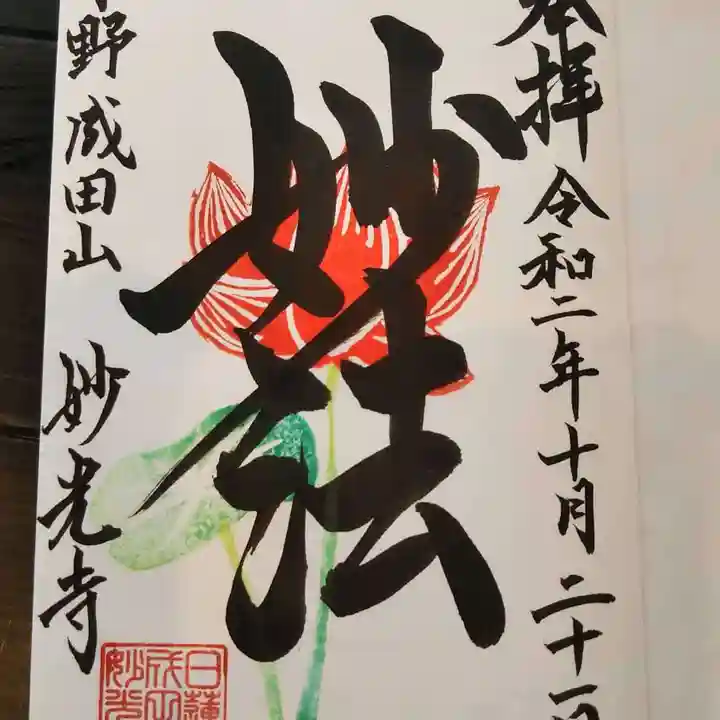 奉拝 令和二年十月二十一日
妙法
野 成田山 妙光寺
日蓮
成田
妙光